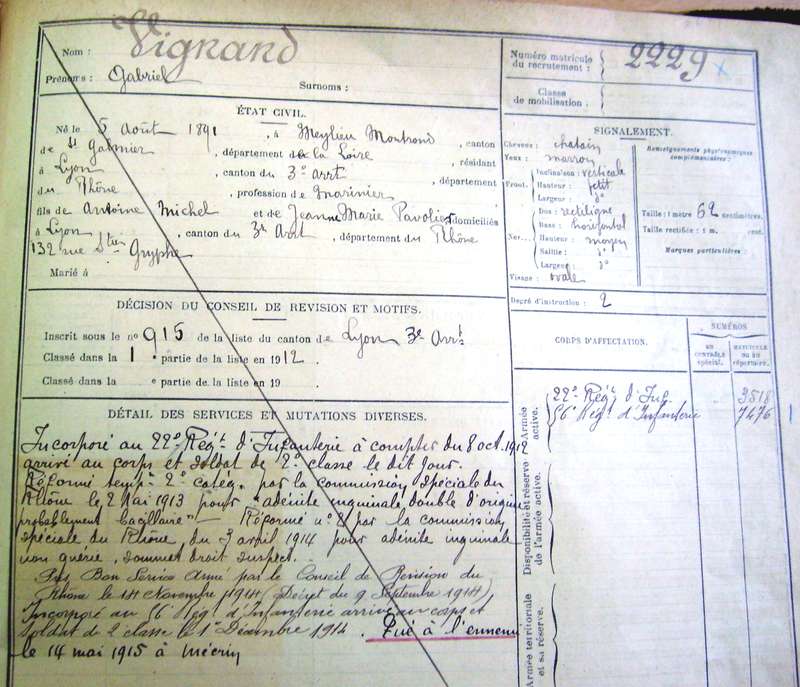 Nom : Vignand
Prénoms : Gabriel
Surnoms :
Numéro matricule
du recrutement : 2229
Classe
de mobilisation :
ÉTAT CIVIL.
Né le 5 août 1891, à Meylieu Montrond, canton
de St Galmier, département de la Loire, résidant
à Lyon, canton du 3e arrt, département
du Rhône, profession de marinier
fils de Antoine Michel et de Jeanne Marie Pavolier domiciliés
à Lyon, canton du 3e Arrt, département du Rhône
132 rue Gryphe
Marié à
SIGNALEMENT.
Cheveux : chatain
Yeux : marron
Front. Inclinaison : verticale
Hauteur : petit
Largeur : do
Nez. Dos : rectiligne
Base : horizontal
Hauteur : moyen
Saillie : do
Largeur : do
Visage : ovale
Renseignements physionomiques
complémentaires :
Taille : 1 mètre 62 centimètres.
Taille rectifiée : 1 m. cent.
Marques particulières :
Degré d'instruction : 2
DÉCISION DU CONSEIL DE REVISION ET MOTIFS.
Inscrit sous le no 915 de la liste du canton de Lyon 3e Arrt
Classé dans la 1e partie de la liste en 1912
Classé dans la e partie de la liste en 19
CORPS D'AFFECTATION.
NUMÉROS
au
contrôle
spécial.
matricule
ou au
répertoire.
Armée
active.
22e Régt d'Inf. 3518
56e Régt d'Infanterie 7476
Disponibilité et réserve
de l'armée active.
Armée territoriale
et sa réserve.
DÉTAIL DES SERVICES ET MUTATIONS DIVERSES.
Incorporé au 22e Régt d'Infanterie à compter du 8 oct. 1912
arrivé au corps et soldat de 2e classe le dit jour.
Réformé tempre 2e catég. par la commission spéciale du
Rhône le 2 mai 1913 pour "adénite inguinale double d'origine
probablement bacillaire" – Réformé no 2 par la commission
spéciale du Rhône, du 3 avril 1914 pour adénite inguinale
non guérie, sommet droit suspect.
Pris Bon Service Armé par le Conseil de Révision du
Rhône le 14 Novembre 1914 (Décret du 9 Septembre 1914)
Incorporé au 56e Régt d'Infanterie arrivé au corps et
soldat de 2e classe le 1er Décembre 1914. Tué à l'ennemi
le 14 mai 1915 à Mécrin